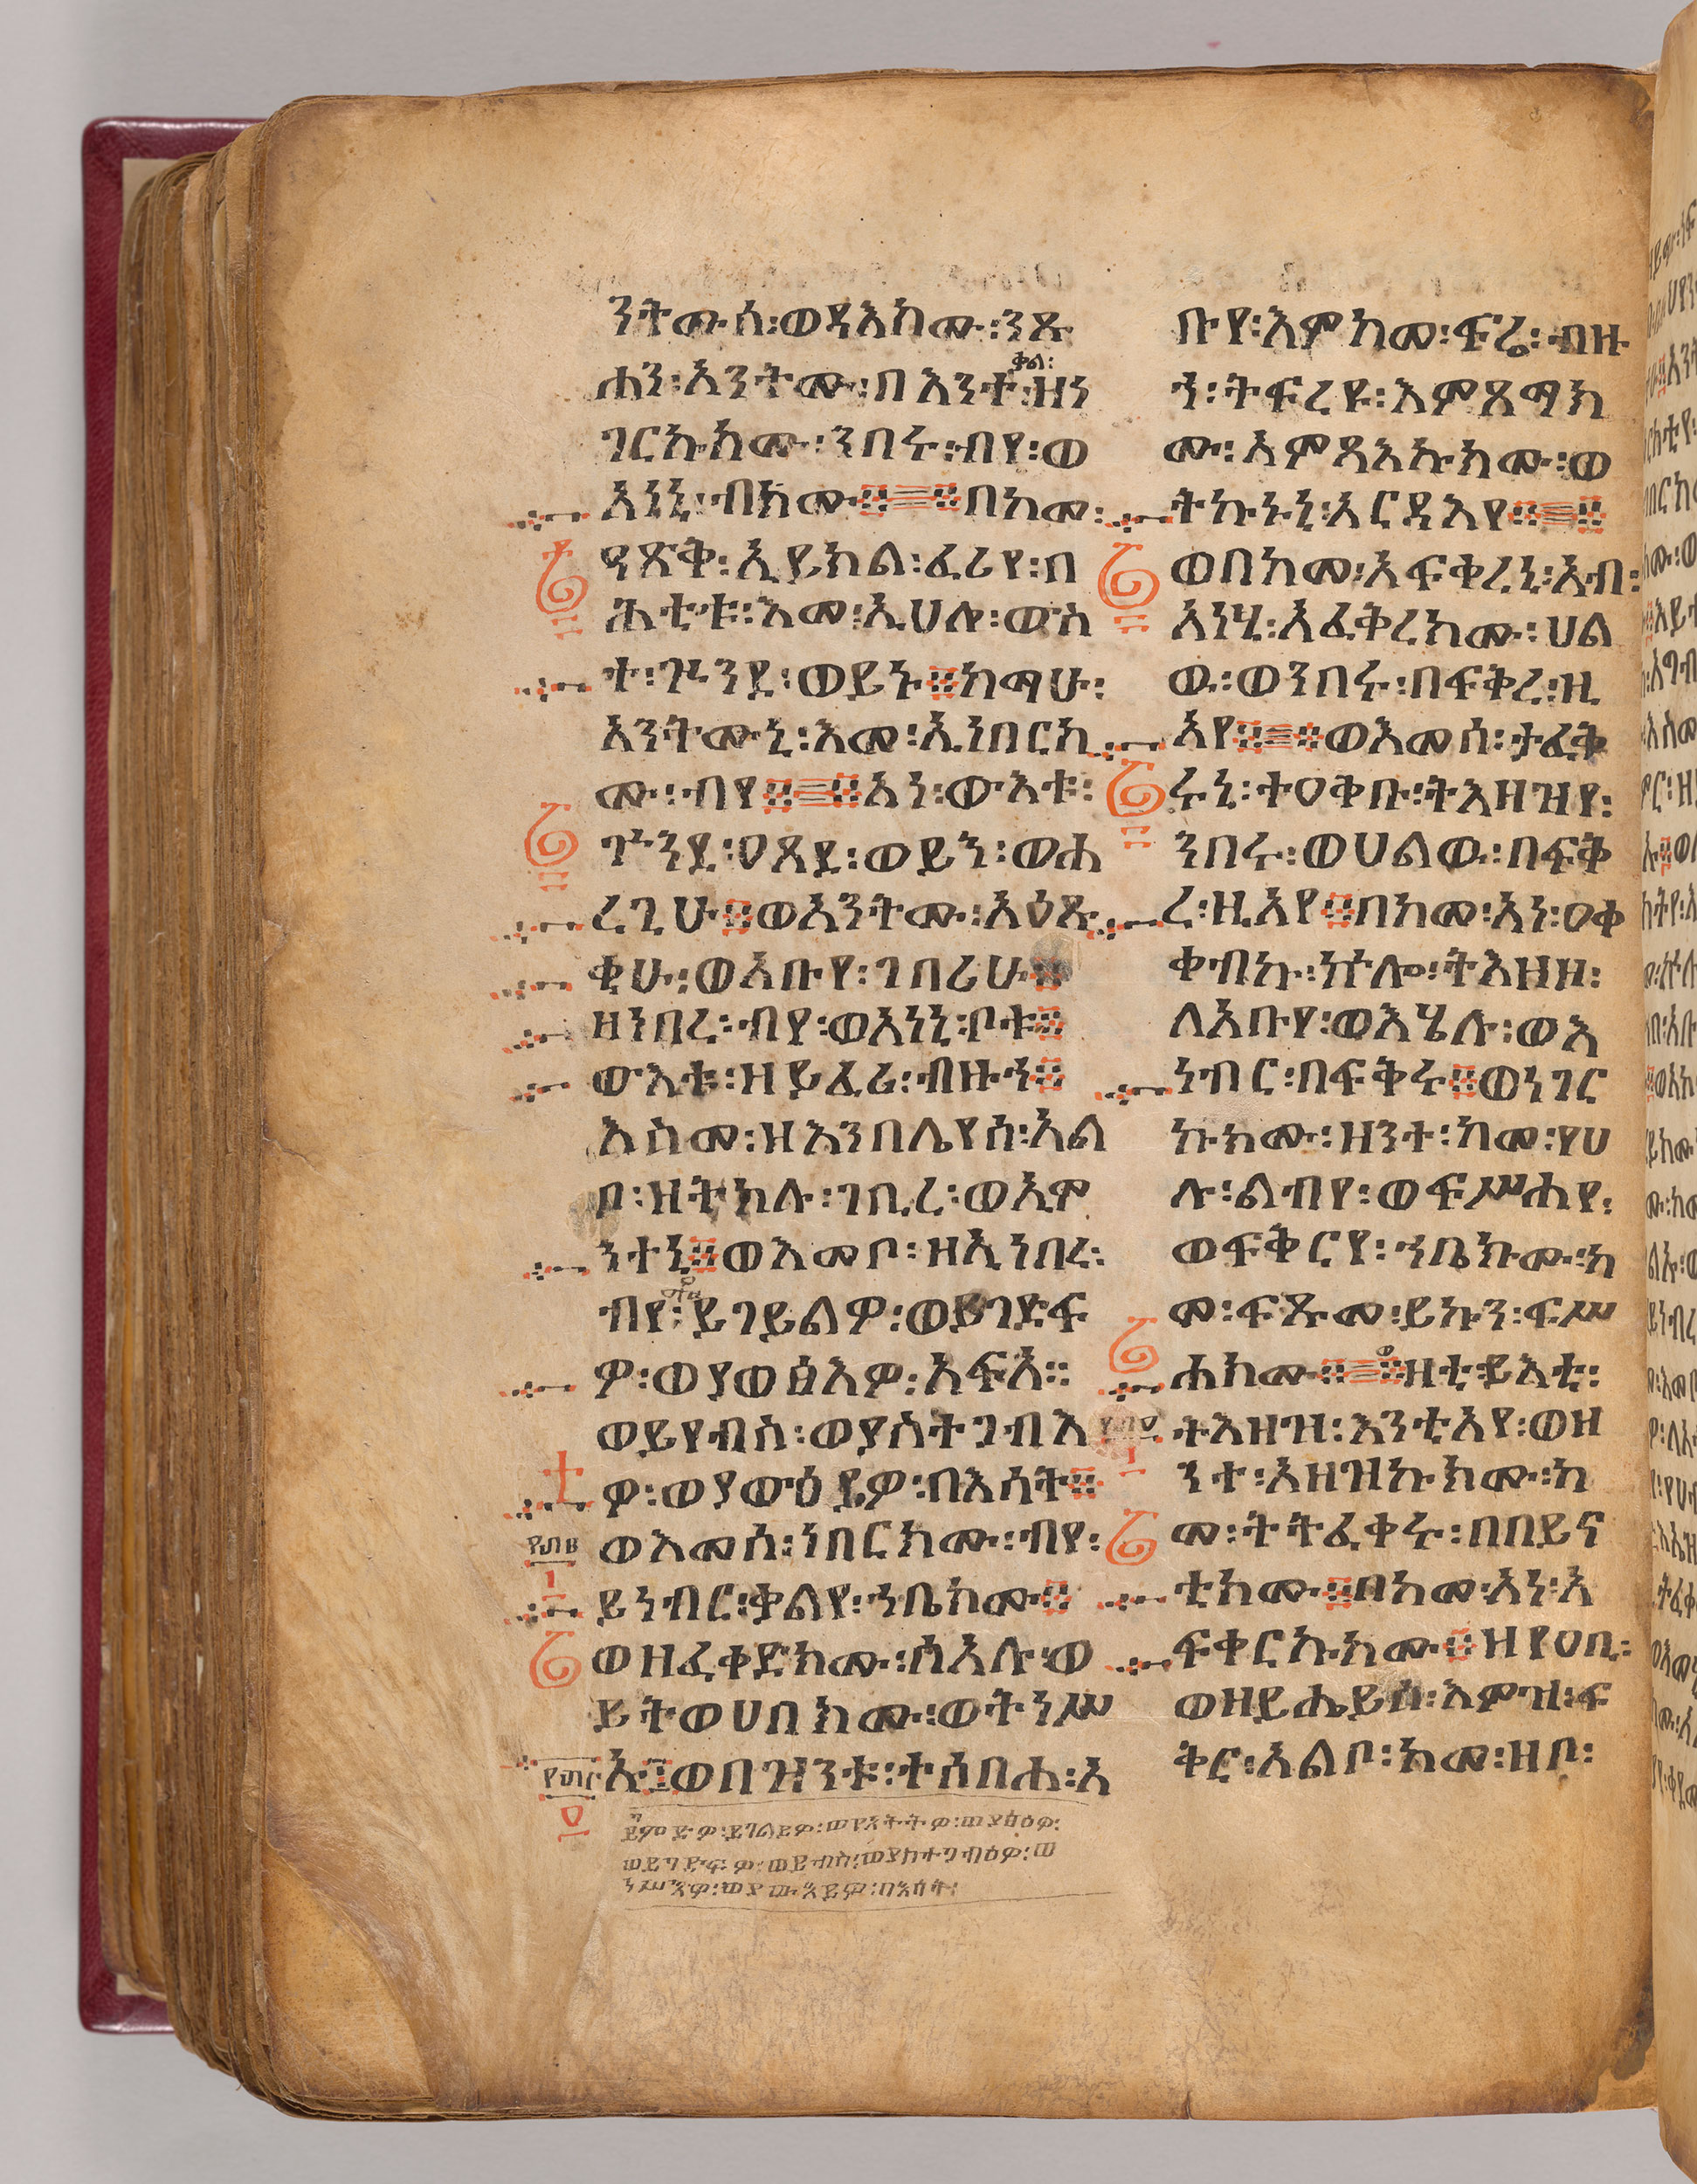 ንትሙሰ፡ወዳእክሙ፡ንጹ
ቃል፡
ሐን፡አንትሙ፡በእንተ፡ዝነ
ገርኩክሙ፡ንበሩ፡ብየ፡ወ
አነኒ፡ብክሙ፨በከመ፡
ዓጽቅ፡ኢይክል፡ፈሪየ፡በ
ሕቲቱ፡እመ፡ኢሀሎ፡ውስ
ተ፡ጕንደ፡ወይኑ፨ከማሁ፡
አንትሙኒ፡እመ፡ኢነበርክ
ሙ፡ብየ፨አነ፡ውእቱ፡
ጕንደ፡ዐጸደ፡ወይን፡ወሐ
ረጊሁ፨ወአንትሙ፡አዕጹ
ቂሁ፡ወአቡየ፡ገበሪሁ፨
ዘነበረ፡ብየ፡ወአነኒ፡ቦቱ፨
ውእቱ፡ዘይፈሪ፡ብዙኅ፨
እስመ፡ዘእንበሌየሰ፡አል
ቦ፡ዘትክሉ፡ገቢረ፡ወኢም
ንተኒ፨ወእመቦ፡ዘኢነበረ፡
ብየ፡ይገይልዎ፡ወይገድፍ
ዎ፡ወያወፅእዎ፡አፍአ።
ወይየብስ፡ወያስትጋብእ
ዎ፡ወያውዕይዎ፡በእሳት፨
ወእመሰ፡ነበርክሙ፡ብየ፡
ይነብር፡ቃልየ፡ኀቤክሙ፨
ወዘፈቀድክሙ፡ሰአሉ፡ወ
ይትወሀበክሙ፡ወትነሥ
እ፨ወበዝንቱ፡ተሰበሐ፡አ
ወይገድፍዎ፡ወይብስ፡ወያስተጋብዕዎ፡ወ
ቡየ፡እምከመ፡ፍሬ፡ብዙ
ኅ፡ትፍረዩ፡እምጸማክ
ሙ፡እምዳእኩክሙ፡ወ
ትኩኑኒ፡አርዳእየ፨
ወበከመ፡አፍቀረኒ፡አብ፡
አነሂ፡አፈቅረክሙ፡ሀል
ዉ፡ወንበሩ፡በፍቅረ፡ዚ
አየ፨ወእመሰ፡ታፈቅ
ሩኒ፡ተዐቀቡ፡ትእዘዝየ፡
ንበሩ፡ወሀልዉ፡በፍቅ
ረ፡ዚአየ፨በከመ፡አነ፡ዐቀ
ቀብኩ፡ኵሎ፡ትእዘዘ፡
ለአቡየ፡ወእሄሉ፡ወእ
ነብር፡በፍቅሩ፨ወነገር
ኩክሙ፡ዘንተ፡ከመ፡የሀ
ሉ፡ልብየ፡ወፍሥሐየ፡
ወፍቅርየ፡ኀቤክሙ፡ከ
መ፡ፍጹመ፡ይኩን፡ፍሥ
ሐክሙ፨ዛቲ፡ይእቲ፡
ትእዘዝ፡እንቲአየ፡ወዘ
ንተ፡አዘዝኩክሙ፡ከ
መ፡ትትፈቀሩ፡በበይና
ቲክሙ፨በከመ፡አነ፡አ
ፍቀርኩክሙ፨ዝየዐቢ፡
ወዘይሔይስ፡እምዝ፡ፍ
ቅር፡አልቦ፡ከመ፡ዘቦ፡